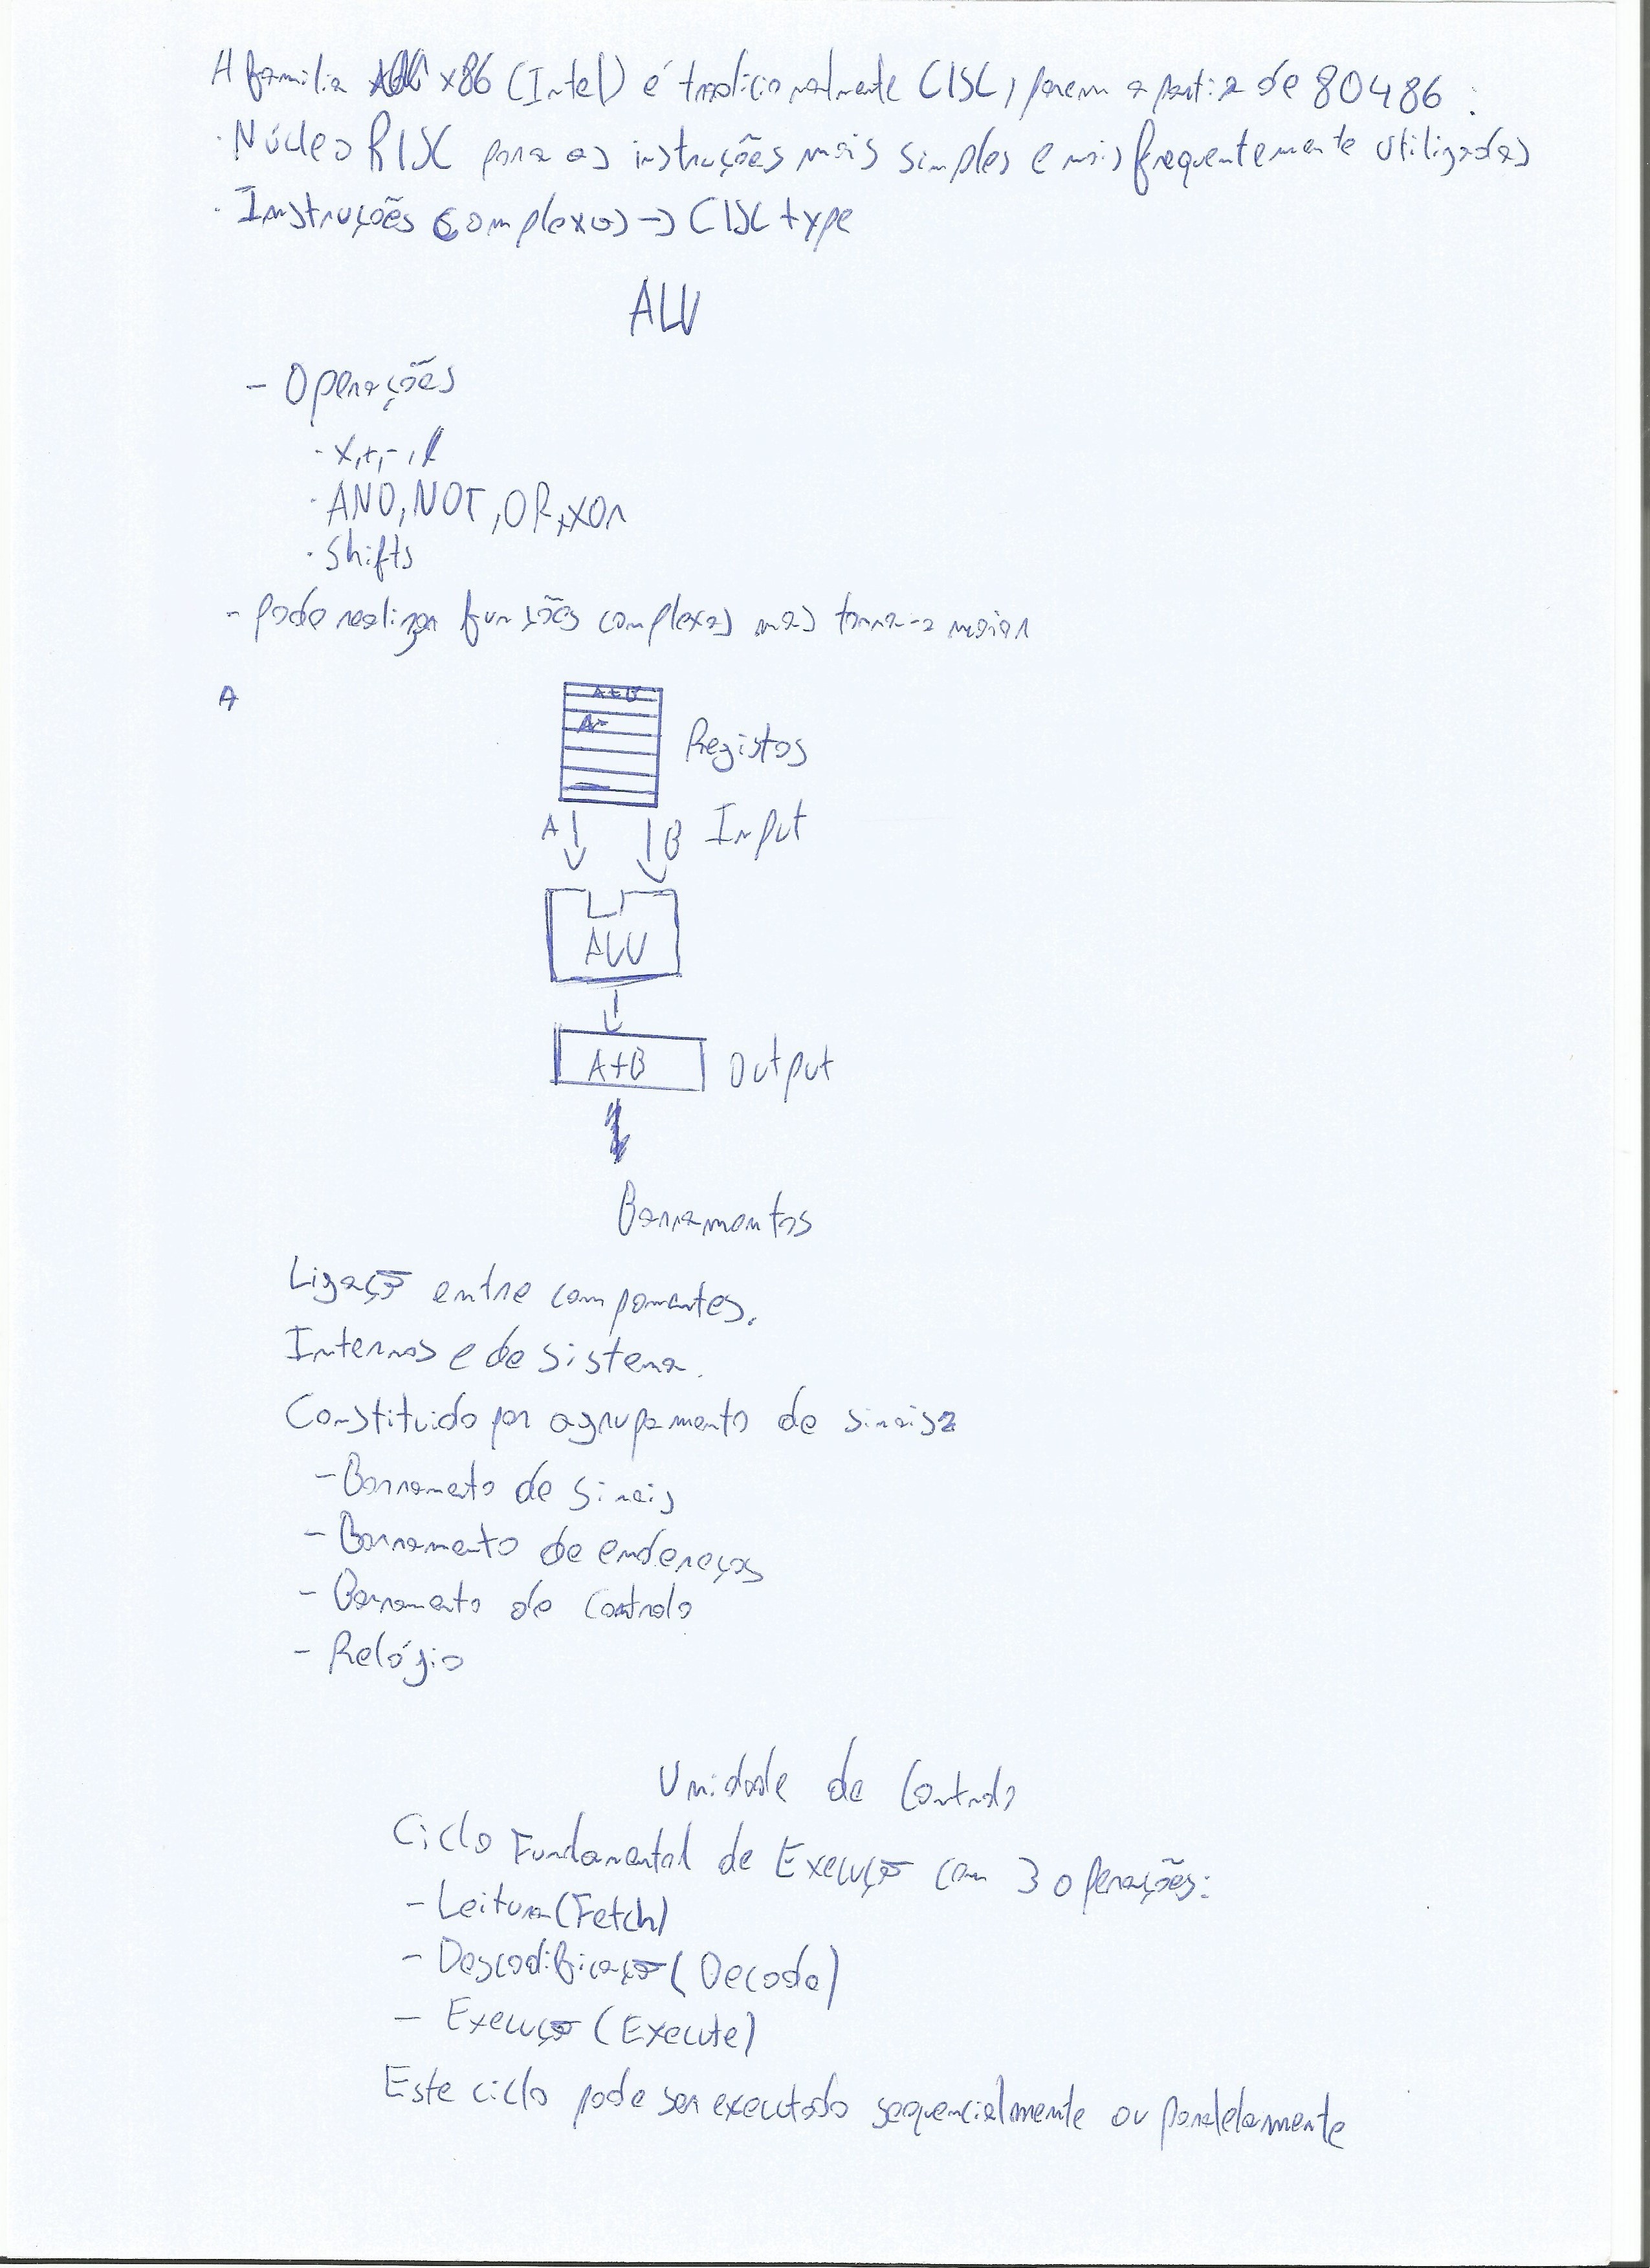 A familia x86 (Intel) é tradicionalmente CISC, porem a partir de 80486:
· Núcleo RISC para as instruções mais simples e mais frequentemente utilizadas
· Instruções complexas → CISC type
ALU
- Operações
· x,+,-,/
· AND, NOT, OR, xOr
· Shifts
- Pode realizar funções complexas mas torna-a maior
A
A+B
A
Registos
A B Input
ALU
A+B Output
Barramentos
Ligação entre componentes.
Internos e de sistema.
Constituido por agrupamento de sinais
- Barramento de sinais
- Barramento de endereços
- Barramento de Controlo
- Relógio
Unidade de Controlo
Ciclo Fundamental de Execução com 3 operações:
- Leitura (Fetch)
- Descodificação (Decode)
- Execução (Execute)
Este ciclo pode ser executado sequencialmente ou paralelamente